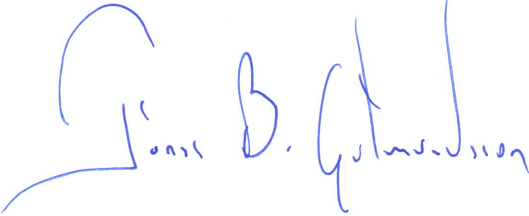 Jónas B. Guðmundsson